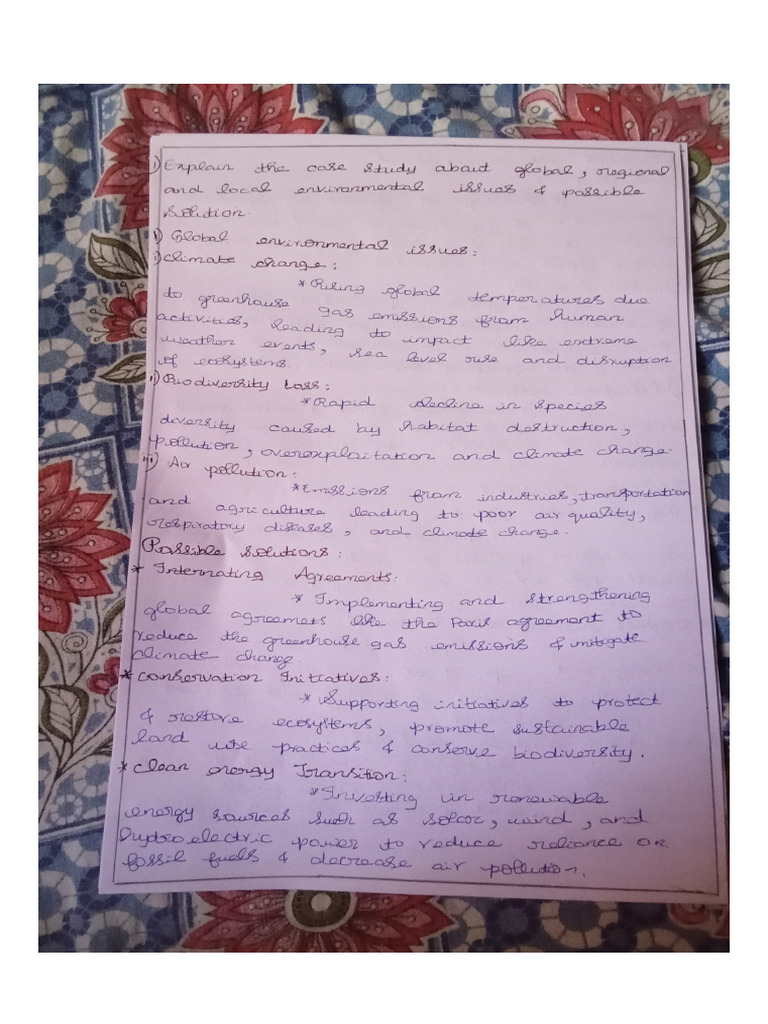 1) Explain the case study about global, regional
and local environmental issues & possible
solution.
1) Global environmental issues:
i) climate change:
* Rising global temperatures due
to greenhouse gas emissions from human
activities, leading to impact like extreme
weather events, sea level rise and disruption
of ecosystems.
ii) Biodiversity Loss:
* Rapid decline in species
diversity caused by habitat destruction,
pollution, overexploitation and climate change.
iii) Air pollution:
* Emssions from industries, transportation
and agriculture leading to poor air quality,
respiratory diseases, and climate change.
Possible solutions:
* Internating Agreements:
* Implementing and strengthening
global agreemets like the Paris agreement to
reduce the greenhouse gas emissions & mitigate
climate change.
* Conservation Initiatives:
* Supporting initiatives to protect
& restore ecosystems, promote sustainable
land use practices & conserve biodiversity.
* Clean energy Transition:
* Investing in renewable
energy sources such as solar, wind, and
hydro electric power to reduce reliance on
fossil fuels & decrease air pollution.